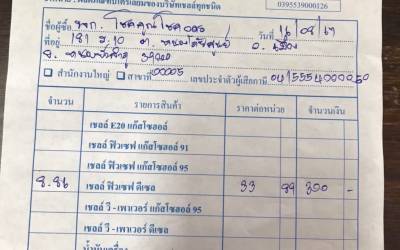 0395539000126
ชื่อผู้ซื้อ หจก. โชคคูณโชค 005 วันที่ 16/08/67
ที่อยู่ 181 ม.10 ต. หนอง อ. เมือง
จ. หนองบัวลำภู 39000
สำนักงานใหญ่ สาขาที่ 00005 เลขประจำตัวผู้เสียภาษี
จำนวน รายการสินค้า ราคาต่อหน่วย จำนวนเงิน
เชลล์ E20 แก๊สโซฮอล์
เชลล์ ฟิวเซฟ แก๊สโซฮอล์ 91
เชลล์ ฟิวเซฟ แก๊สโซฮอล์ 95
8.86 เชลล์ ฟิวเซฟ ดีเซล 33 89 300 -
เชลล์ วี - เพาเวอร์ แก๊สโซฮอล์ 95
เชลล์ วี - เพาเวอร์ ดีเซล
น้ำมันเครื่อง